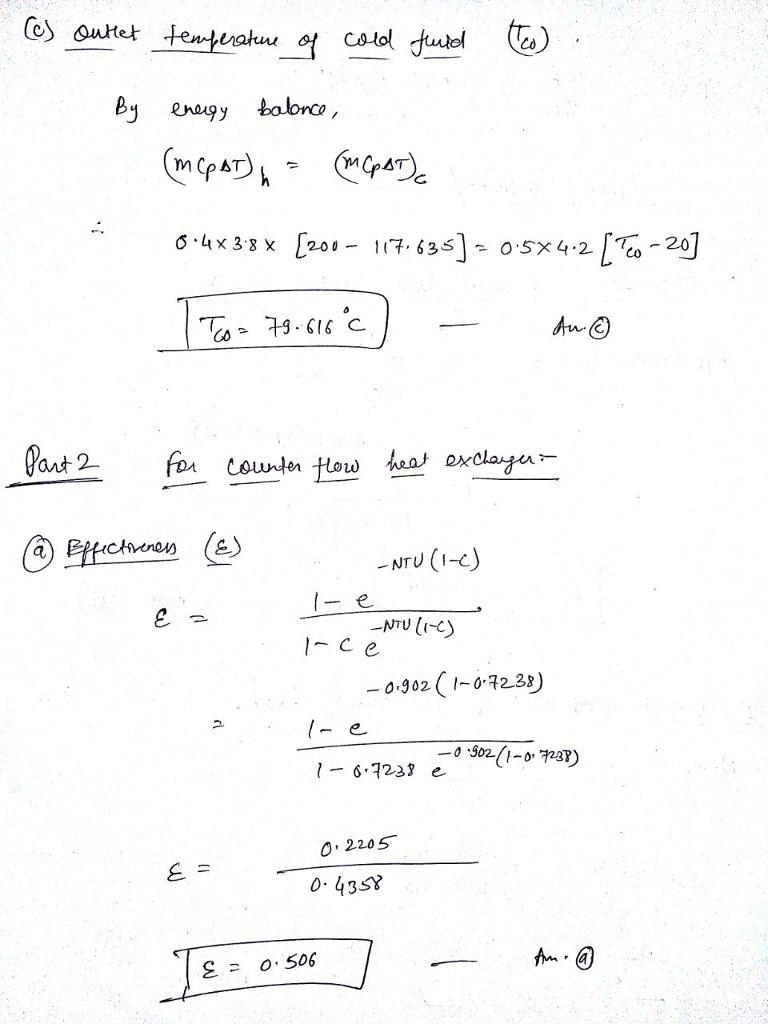 (C) Outlet temperature of cold fluid (Tco) .
By energy balance,
(m Cp ΔT)h = (m Cp ΔT)c
∴ 0.4 x 3.8 x [200 - 117.635] = 0.5 x 4.2 [Tco - 20]
Tco = 79.616 °C — An. (C)
Part 2 For counter flow heat exchanger :-
(a) Effectiveness (ε)
-NTU (1-C)
ε = 1 - e
1 - C e -NTU (1-C)
-0.902 ( 1-0.7238)
= 1 - e
1 - 0.7238 e -0.902 (1-0.7238)
ε = 0.2205
0.4358
ε = 0.506 — An. (a)